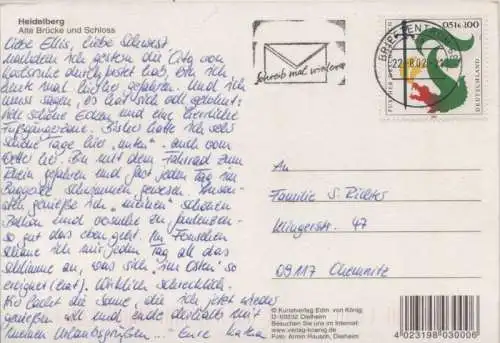 Heidelberg
Alte Brücke und Schloss
Liebe Ellis, liebe Schwest
Nachdem ich gestern die City von
Karlsruhe durchgestet hab, bin ich
heute mal hierher gefahren. Und ich
muss sagen, es hat sich voll gelohnt:
viele schöne Ecken und eine herrliche
Fußgängerzone. Bisher hatte ich sehr
schöne Tage hier "unten" – auch vom
Wetter her. Bin mit dem Fahrrad zum
Rhein gefahren und fast jeden Tag im
Baggersee schwimmen gewesen. Ansonsten
genieße ich "meinen" schönen
Balkon und versuche zu faulenzen –
so gut das eben geht. Im Fernsehen
schaue ich mir jeden Tag all das
Schlimme an, was sich "im Osten" so
ereignet (hat). Wirklich schrecklich.
lacht die Sonne, die ich jetzt wieder
genießen will und ende deshalb mit
lieben Urlaubsgrüßen... Eure
Schreib mal wieder
BRIEFZENTRUM
22.-8.02
0,51 € 100
DEUTSCHLAND
An
Familie S. Richter
47
09117 Chemnitz
© Kunstverlag Edm. von König,
D-69232 Dielheim
Besuchen Sie uns im Internet:
www.verlag-koenig.de
Foto: Armin Rausch, Dielheim
4 023198 030006